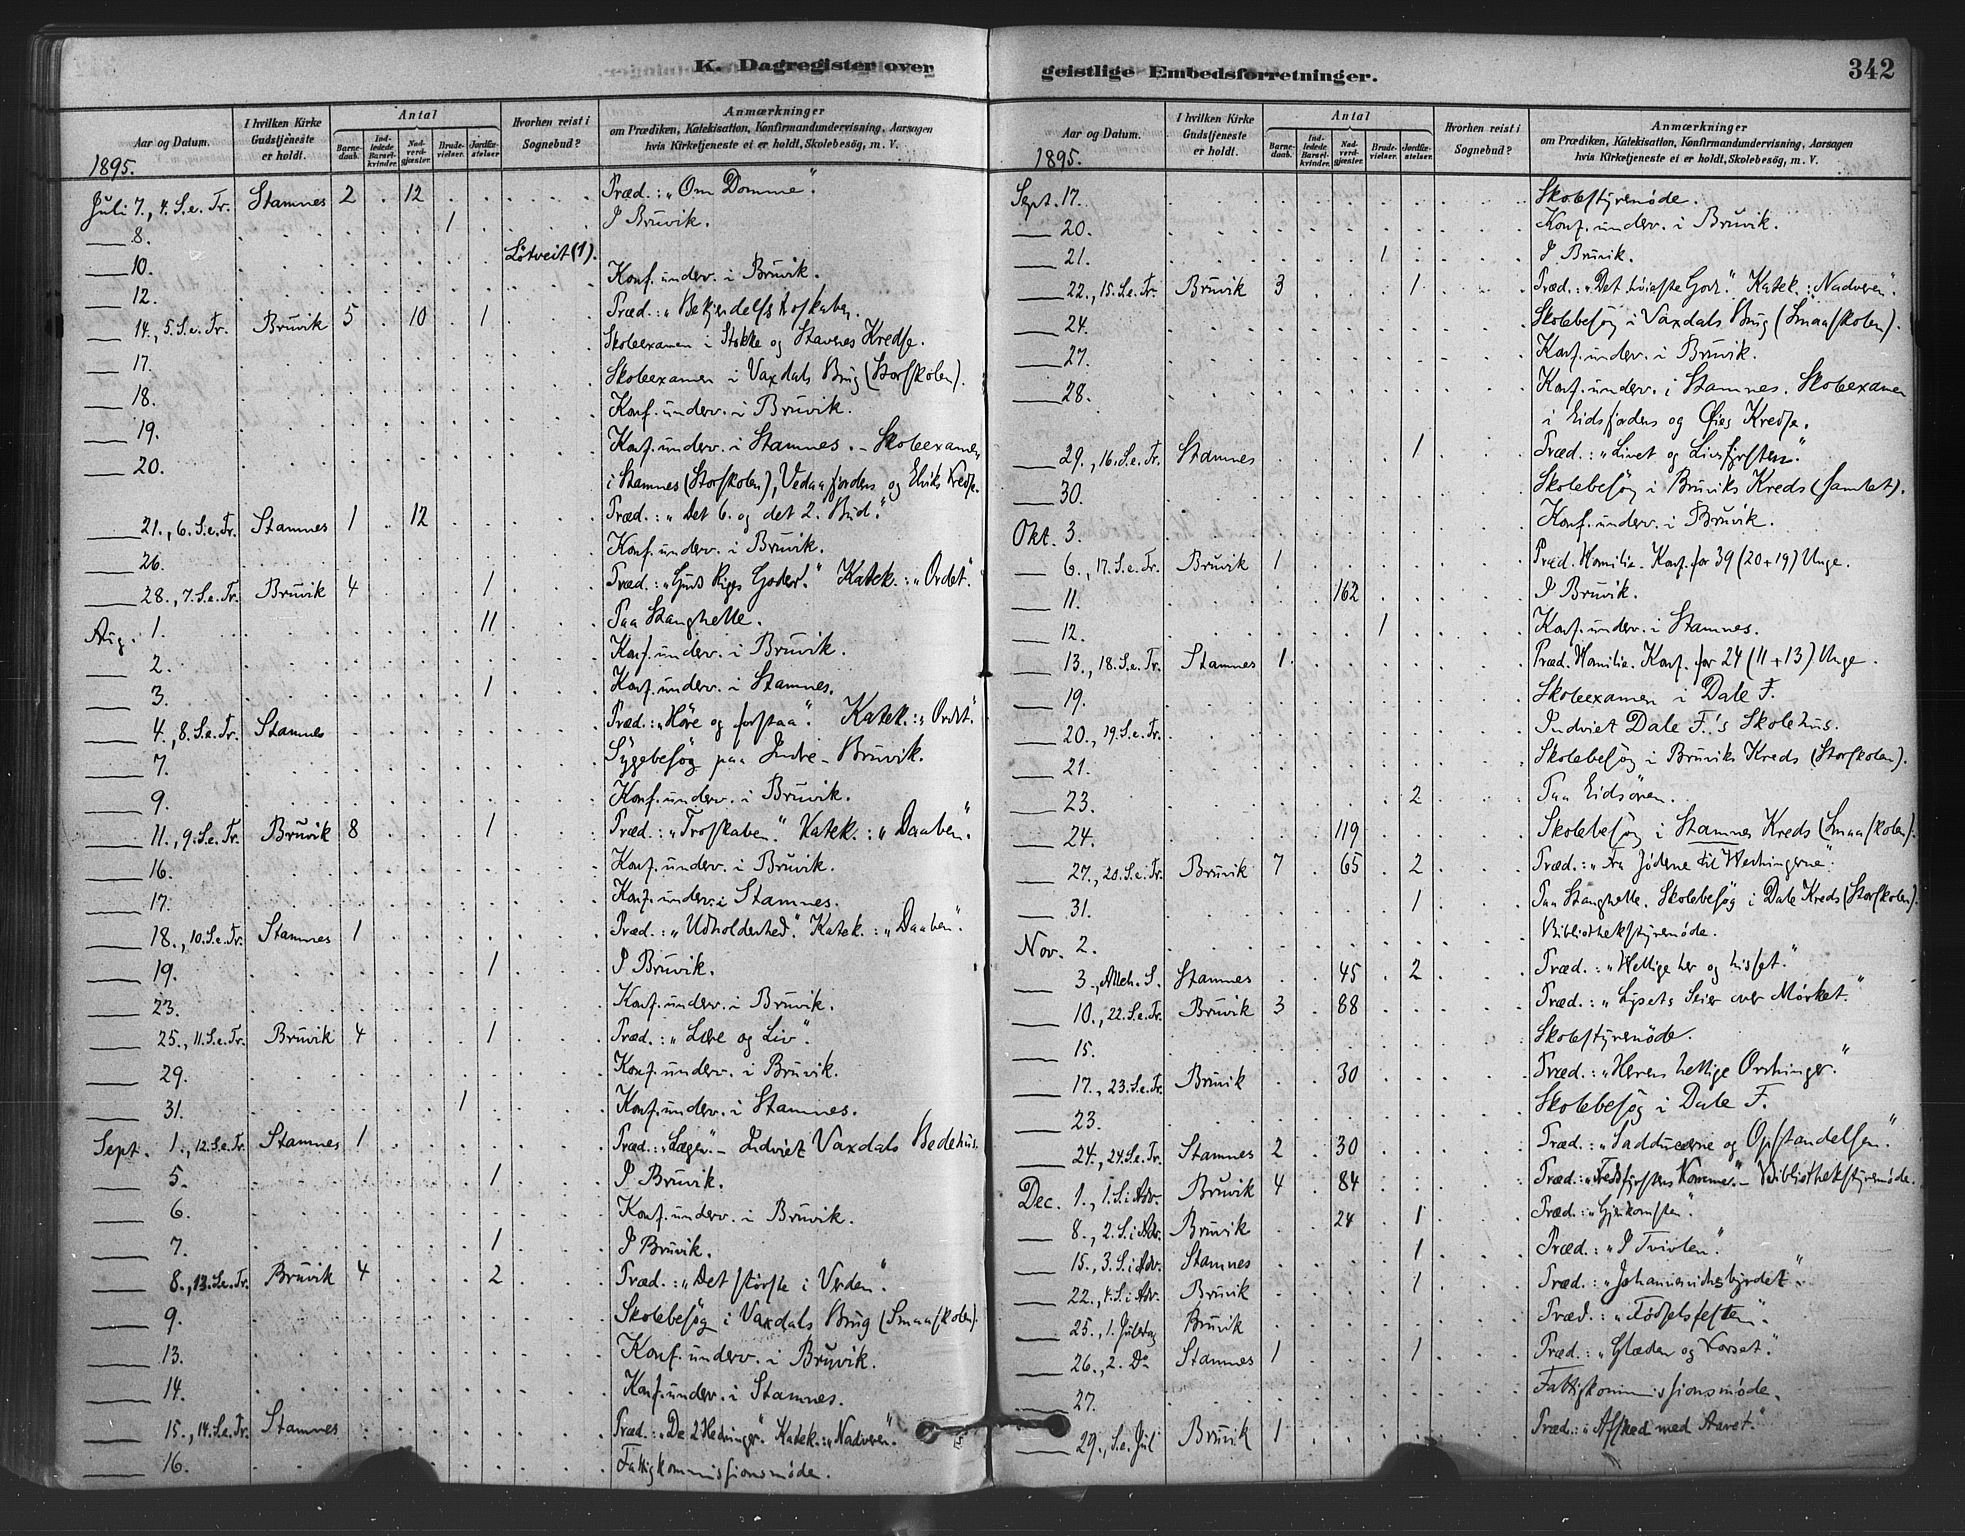 K. Dagregister over
Aar og Datum.
I hvilken Kirke Gudstjeneste er holdt.
Antal
Barne-daab.
Ind-ledede Barsel-kvinder.
Nad-verd-gjæster.
Brude-vielser.
Jordfæ-stelser
Hvorhen reist i Sognebud?
Anmærkninger
om Prædiken, Katekisation, Konfirmandundervisning, Aarsagen
hvis Kirketjeneste ei er holdt, Skolebesög, m. V.
1895.
Juli 7., 4. S. e. Tr. Stamnes 2 . 12 . . . Præd.: „Om Domme".
8. 1 I Bruvik.
10. Løtveit (1).
12. Konf. underv. i Bruvik.
14., 5. S. e. Tr. Bruvik 5 . 10 . 1 Præd.: „Bekjendelsestroskaben.
17. Skoleexamen i Stokke og Stavenes Kredse.
18. Skoleexamen i Vaxdals Brug (Storskolen).
19. Konf. underv. i Bruvik.
20. Konf. underv. i Stamnes. – Skoleexamen
i Stamnes (Storskolen), Vedaafjordens og Eknes Kredse.
21., 6. S. e. Tr. Stamnes 1 . 12 . . Præd.: „Det 6. og det 2. Bud."
26. Konf. underv. i Bruvik.
28., 7. S. e. Tr. Bruvik 4 . . . 1 Præd.: „Guds Riges Goder." Katek.: „Ordet".
Aug. 1. 11 Paa Stanghelle.
2. Konf. underv. i Bruvik.
3. 1 Konf. underv. i Stamnes.
4., 8. S. e. Tr. Stamnes Præd.: „Høre og forstaa". Katek.: „Ordet".
7. Sygebesøg paa Indre-Bruvik.
9. Konf. underv. i Bruvik.
11., 9. S. e. Tr. Bruvik 8 . . . 1 Præd.: „Troskaben." Katek.: „Daaben".
16. Konf. underv. i Bruvik.
17. Konf. underv. i Stamnes.
18., 10. S. e. Tr. Stamnes 1 Præd.: „Udholdenhed". Katek.: „Daaben".
19. 1 I Bruvik.
23. Konf. underv. i Bruvik.
25., 11. S. e. Tr. Bruvik 4 . . . 1 Præd.: „Lære og Liv".
29. Konf. underv. i Bruvik.
31. 1 Konf. underv. i Stamnes.
Sept. 1., 12. S. e. Tr. Stamnes 1 Præd.: „Lægen". – Indviet Vaxdals Bedehus.
5. 1 I Bruvik.
6. Konf. underv. i Bruvik.
7. 1 I Bruvik.
8., 13. S. e. Tr. Bruvik 4 . . . 2 Præd.: „Det største i Verden".
9. Skolebesøg i Vaxdals Brug (Smaaskolen).
13. Konf. underv. i Bruvik.
14. Konf. underv. i Stamnes.
15., 14. S. e. Tr. Stamnes Præd.: „De 2 Hedninger". Katek.: „Nadveren".
16. Fattigkommissionsmøde.
geistlige Embedsforretninger.
342
Aar og Datum.
I hvilken Kirke Gudstjeneste er holdt.
Antal
Barne-daab.
Ind-ledede Barsel-kvinder.
Nad-verd-gjæster.
Brude-vielser.
Jordfæ-stelser.
Hvorhen reist i Sognebud?
Anmærkninger
om Prædiken, Katekisation, Konfirmandundervisning, Aarsagen
hvis Kirketjeneste ei er holdt, Skolebesög, m. V.
1895.
Sept. 17. Skolestyremøde.
20. Konf. underv. i Bruvik.
21. 1 I Bruvik.
22., 15. S. e. Tr. Bruvik 3 . . . 1 Præd.: „Det høieste Gode". Katek.: „Nadveren".
24. Skolebesøg i Vaxdals Brug (Smaaskolen).
27. Konf. underv. i Bruvik.
28. Konf. underv. i Stamnes. Skoleexamen
i Eidsfjordens og Øies Kredse.
29., 16. S. e. Tr. Stamnes 1 Præd.: „Livet og Livsfyrsten".
30. Skolebesøg i Bruviks Kreds (samlet).
Okt. 3. Konf. underv. i Bruvik.
6., 17. S. e. Tr. Bruvik 1 Præd. Homilie. Konf. for 39 (20+19) Unge.
11. 162 I Bruvik.
12. 1 Konf. underv. i Stamnes.
13., 18. S. e. Tr. Stamnes 1 Præd. Homilie. Konf. for 24 (11+13) Unge.
19. Skoleexamen i Dale F.
20., 19. S. e. Tr. Indviet Dale F.'s Skolehus.
21. Skolebesøg i Bruviks Kreds (Storskolen).
23. 2 Paa Eidsøren.
24. 119 Skolebesøg i Stamnes Kreds (Smaaskolen).
27., 20. S. e. Tr. Bruvik 7 . 65 . 2 Præd.: „Fra Jøderne til Hedningerne".
31. 1 Paa Stanghelle. Skolebesøg i Dale Kreds (Storskolen).
Nov. 2. Bibliothekstyremøde.
3., Alleh. S. Stamnes . . 45 . 2 Præd.: „Hellige her og hisset."
10., 22. S. e. Tr. Bruvik 3 . 88 Præd.: „Lysets Seier over Mørket."
15. Skolestyremøde.
17., 23. S. e. Tr. Bruvik 30 Præd.: „Herrens hellige Ordninger."
23. Skolebesøg i Dale F.
24., 24. S. e. Tr. Stamnes 2 . 30 Præd.: „Sadducæerne og Opstandelsen".
Dec. 1., 1. S. i Adv. Bruvik 4 . 84 Præd.: „Fredsfyrstens Komme". – Bibliothekstyremøde.
8., 2. S. i Adv. Bruvik 24 . 1 Præd.: „Gjenkomsten".
15., 3. S. i Adv. Stamnes 1 Præd.: „I Tvivlen".
22., 4. S. i Adv. Bruvik 1 Præd.: „Johannesvidnesbyrdet".
25., 1. Juledag Bruvik Præd.: „Fødselsfesten".
26., 2. Do Stamnes 1 . . . 1 Præd.: „Glæden og Korset".
27. Fattigkommissionsmøde.
29., S. e. Jul Bruvik 1 Præd.: „Afsked med Aaret."